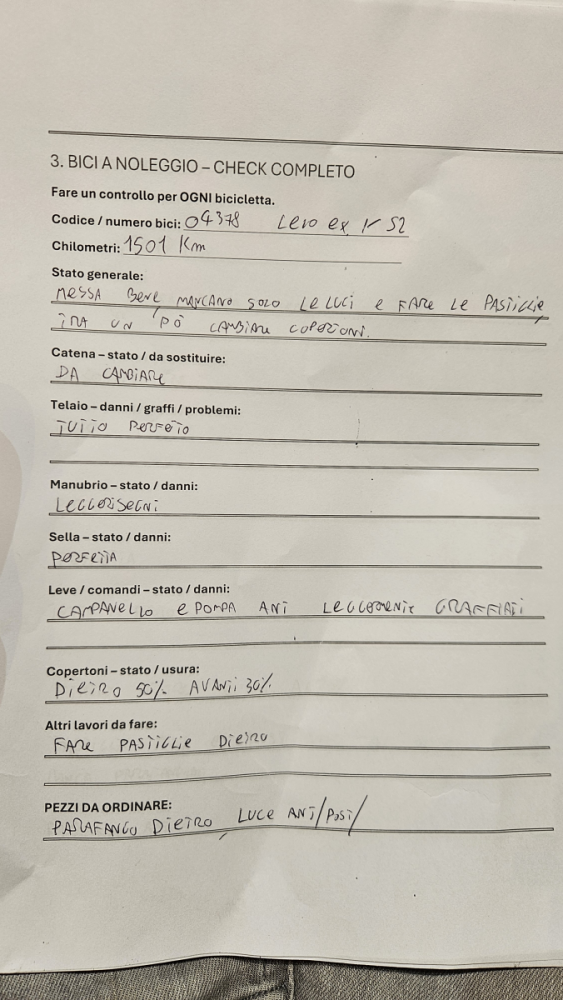 3. BICI A NOLEGGIO – CHECK COMPLETO
Fare un controllo per OGNI bicicletta.
Codice / numero bici: 04378 Levo ex S2
Chilometri: 1501 Km
Stato generale:
MESSA BENE MANCANO SOLO LE LUCI e FARE LE PASTIGLIE
TRA UN PÒ CAMBIARE COPERTONI.
Catena – stato / da sostituire:
DA CAMBIARE
Telaio – danni / graffi / problemi:
TUTTO PERFETO
Manubrio – stato / danni:
LEGGERI SEGNI
Sella – stato / danni:
PERFETTA
Leve / comandi – stato / danni:
CAMPANELLO e POMPA ANT LEGGERMENTE GRAFFIATI
Copertoni – stato / usura:
DIETRO 50% AVANTI 30%
Altri lavori da fare:
FARE PASTIGLIE DIETRO
PEZZI DA ORDINARE:
PARAFANGO DIETRO LUCE ANT/POST/